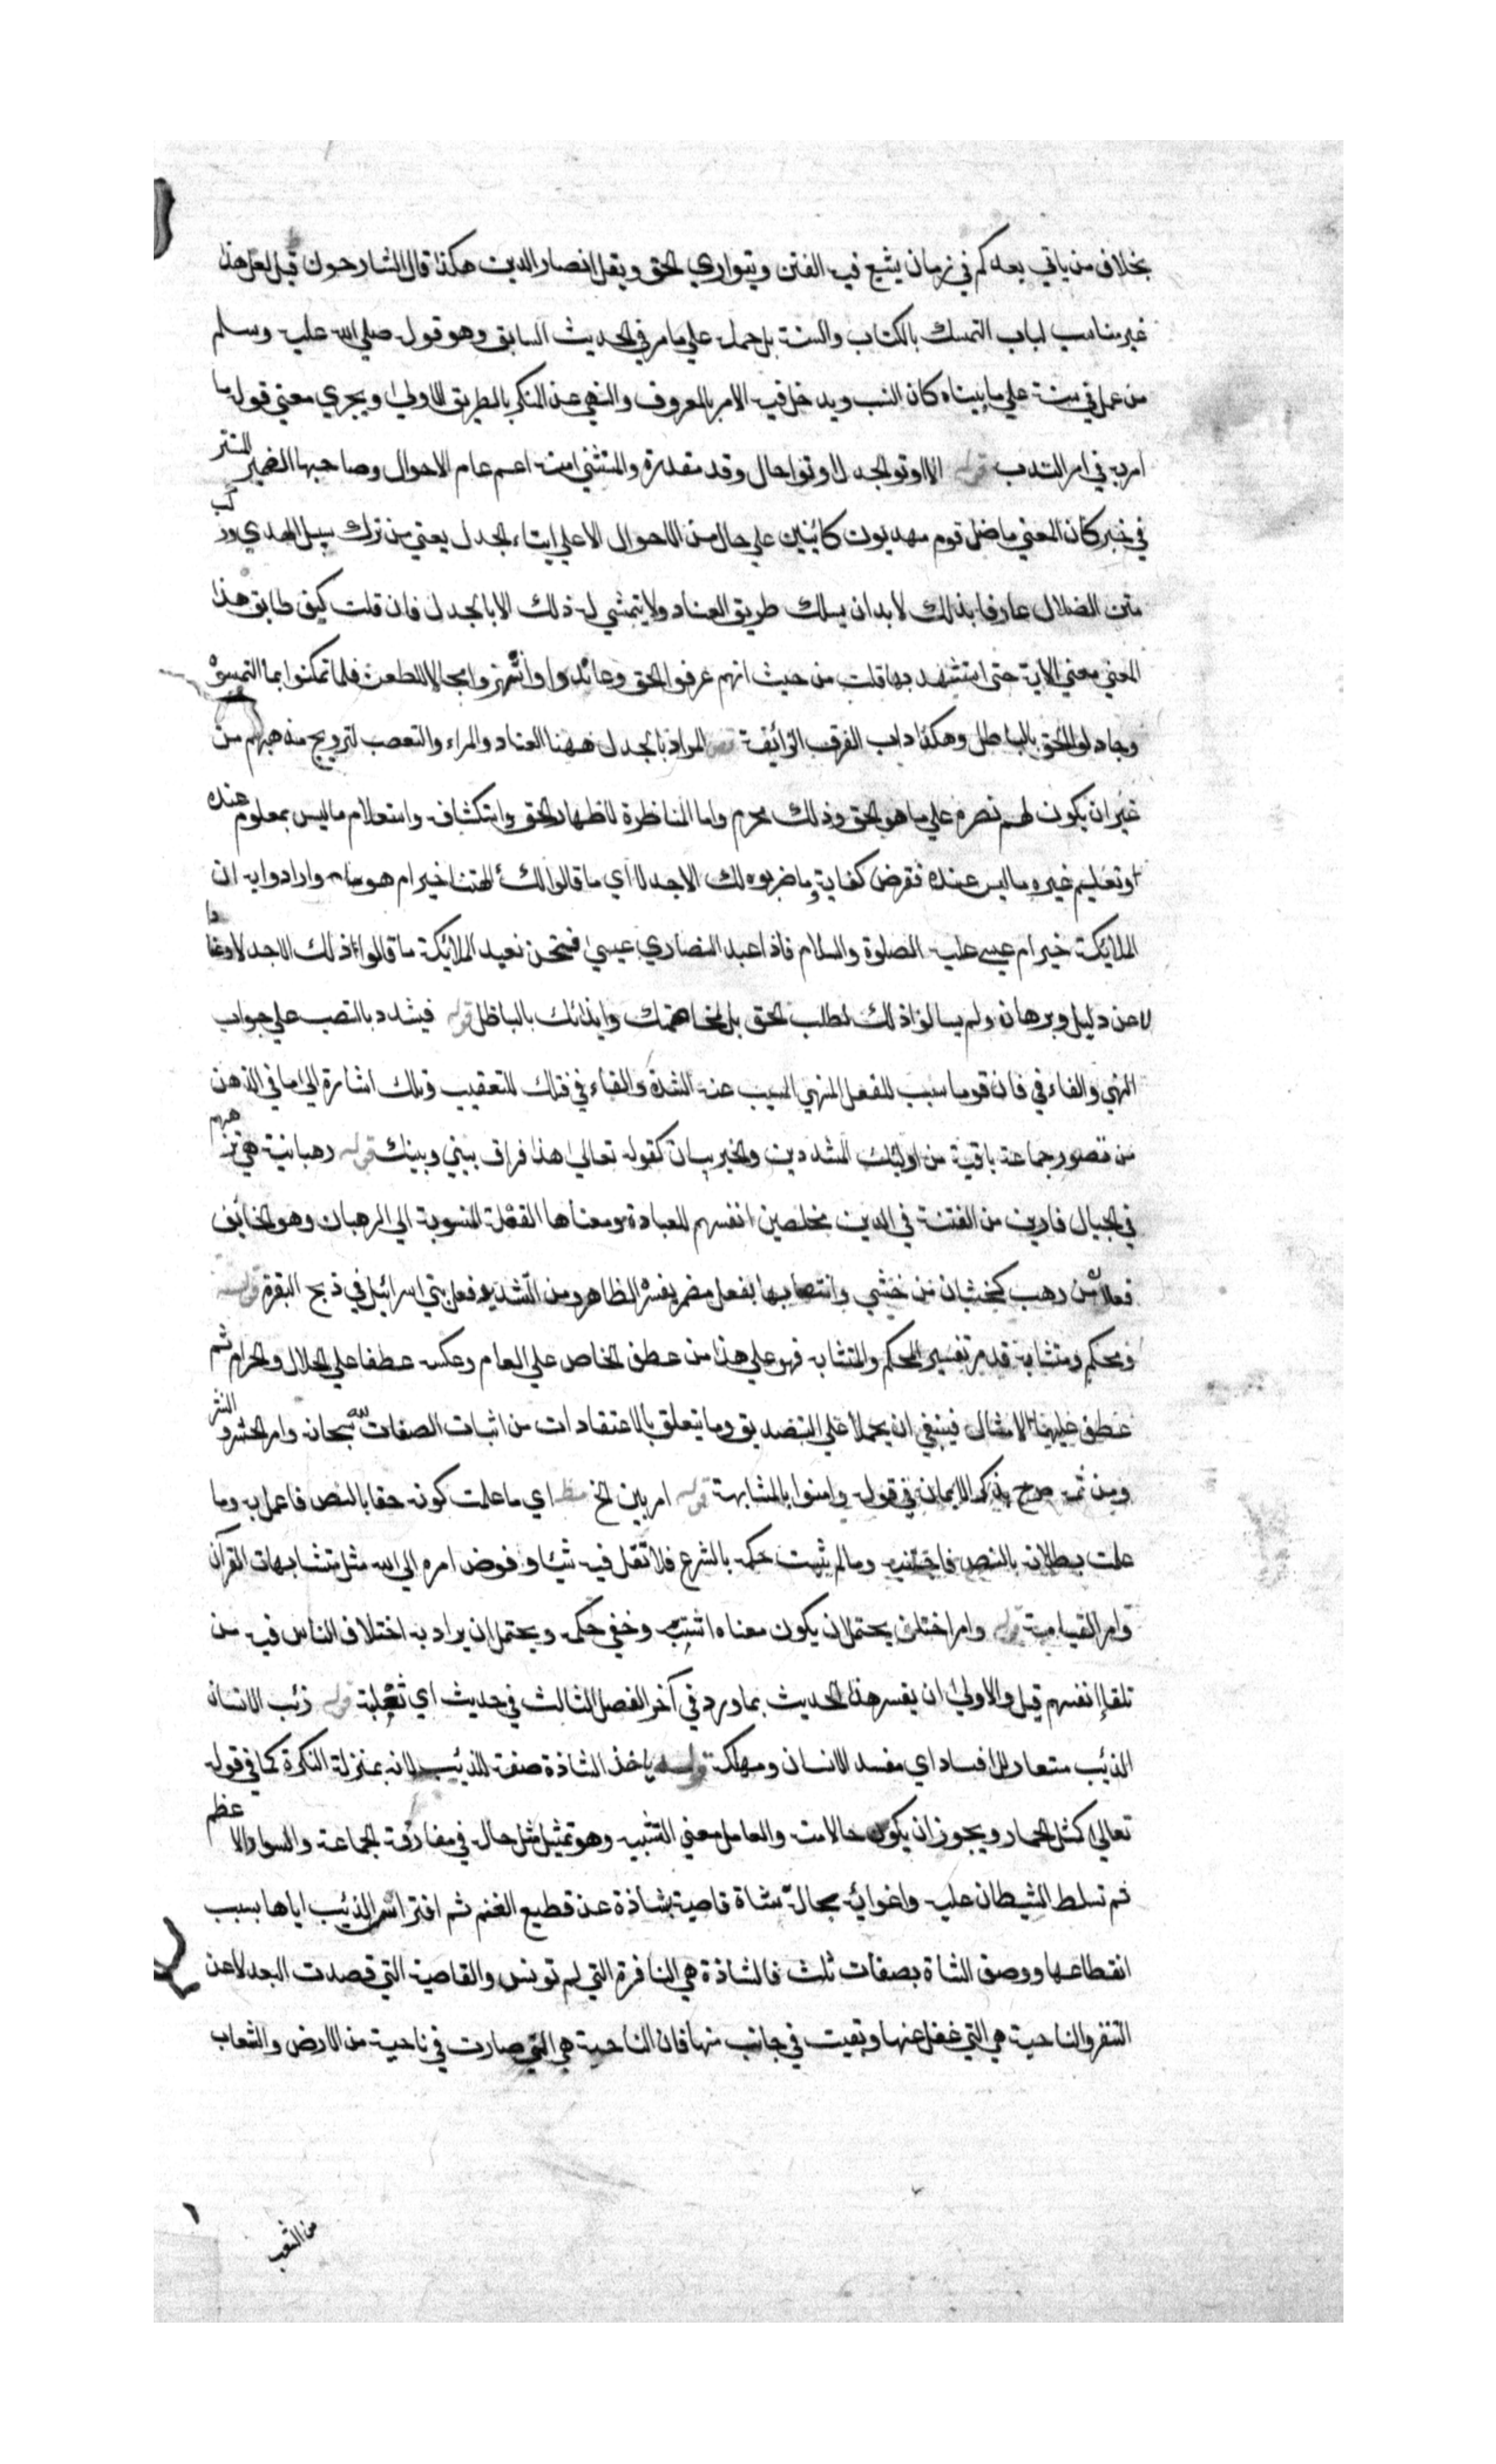 بخلاف من ياتي بعدكم في زمان يشيع فيه الفتن ويتواري الحق ويقل انصار الدين هكذا قال الشارحون قيل لعل هذا
غير مناسب لباب التمسك بالكتاب والسنة بل حمله علي ما مر في الحديث السابق وهو قوله صلي الله عليه وسلم
من عمل في سنة علي ما بيناه كان انسب ويدخل فيه الامر بالمعروف والنهي عن المنكر بالطريق الاولي ويجري معني قوله ما
امر به في امر الندب قوله الا اوتوا الجدل اوتوا حال وقد مقدرة والمستثني منه اعم عام الاحوال وصاحبها الضمير المستتر
في خبر كان المعني ما ضل قوم مهديون كائنين علي حال من الاحوال الا علي ايتاء الجدل يعني من ترك سبيل الهدي وركب
متن الضلال عارفا بذلك لا بد ان يسلك طريق العناد ولا يتمشي له ذلك الا بالجدل فان قلت كيف طابق هذا
المعني معني الاية حتي استشهد بها قلت من حيث انهم عرفوا الحق وعاندوا وانتهزوا مجالا للطعن فلما تمكنوا بما التمسوه
وجادلوا الحق بالباطل وهكذا داب الفرق الزائفة المراد بالجدل ههنا العناد والمراء والتعصب لترويج مذهبهم من
غير ان يكون لهم نصرة علي ما هو الحق وذلك محرم واما المناظرة لاظهار الحق واستكشافه واستعلام ما ليس بمعلوم عنده
او تعليم غيره ما ليس عنده ففرض كفاية وما ضربوه لك الا جدلا اي ما قالوا لك ألهتنا خير ام هو وارادوا به ان
الملائكة خير ام عيسي عليه الصلوة والسلام فاذا عبد النصاري عيسي فنحن نعبد الملائكة ما قالوا ذلك الا جدلا
لا عن دليل وبرهان ولم يسالوا ذلك لطلب الحق بل لمخاصمتك وايذائك بالباطل قوله فيشدد بالنصب علي جواب
النهي والفاء في فان قوما سبب للفعل المنهي المسبب عنه الشدة والفاء في فتلك للتعقيب وتلك اشارة الي ما في الذهن
من تصور جماعة باقية من اولئك المشددين والخبر بيان كقوله تعالي هذا فراق بيني وبينك قوله رهبانية هي ترهبهم
في الجبال فارين من الفتنة في الدين مخلصين انفسهم للعبادة ومعناها الفعلة المنسوبة الي الرهبان وهو الخائف
فعلان من رهب كخشيان من خشي وانتصابها بفعل مضمر يفسره الظاهر ومن التشديد فعل بني اسرائيل في ذبح البقرة قوله
ومحكم ومتشابه قد مر تفسير المحكم والمتشابه فهو علي هذا من عطف الخاص علي العام وعكسه عطفا علي الحلال والحرام ثم
عطف عليهما الامثال فينبغي ان يحملا علي التصديق وما يتعلق بالاعتقادات من اثبات الصفات لله سبحانه وامر الحشر والنشر
ومن ثمه صرح بذكر الايمان في قوله وامنوا بالمتشابهة قوله امر بين الخ اي ما علمت كونه حقا بالنص فاعمل به وما
علمت بطلانه بالنص فاجتنبه وما لم يثبت حكمه بالشرع فلا تقل فيه شيئا وفوض امره الي الله مثل متشابهات القرآن
وامر القيامة قوله وامر اختلف يحتمل ان يكون معناه اشتبه وخفي حكمه ويحتمل ان يراد به اختلاف الناس فيه من
تلقاء انفسهم قيل والاولي ان يفسر هذا الحديث بما ورد في آخر الفصل الثالث في حديث ابي ثعلبة قوله ذئب الانسان
الذئب مستعار للافساد اي مفسد للانسان ومهلكه قوله ياخذ الشاذة صفة للذئب لانه بمنزلة النكرة كما في قوله
تعالي كمثل الحمار ويجوز ان يكون حالا منه والعامل معني التشبيه وهو تمثيل مثل حاله في مفارقة الجماعة والسواد الاعظم
ثم تسلط الشيطان عليه واغوائه بحالة شاة قاصية شاذة عن قطيع الغنم ثم افتراس الذئب اياها بسبب
انقطاعها ووصف الشاة بصفات ثلث فالشاذة هي النافرة التي لم تونس والقاصية التي قصدت البعد لا عن
التنفر والناحية هي التي غفل عنها وبقيت في جانب منها فان الناحية هي التي صارت في ناحية من الارض والشعاب
٦
من الشعب